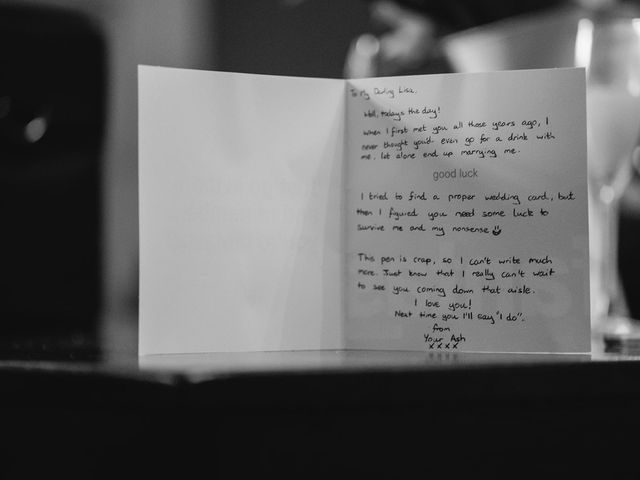 To My Darling Lisa,
Well, todays the day!
When I first met you all those years ago, I
never thought you'd even go for a drink with
me, let alone end up marrying me.
good luck
I tried to find a proper wedding card, but
then I figured you need some luck to
survive me and my nonsense
This pen is crap, so I can't write much
more. Just know that I really can't wait
to see you coming down that aisle.
I love you!
Next time you I'll say "I do".
from
Your Ash
xxxx